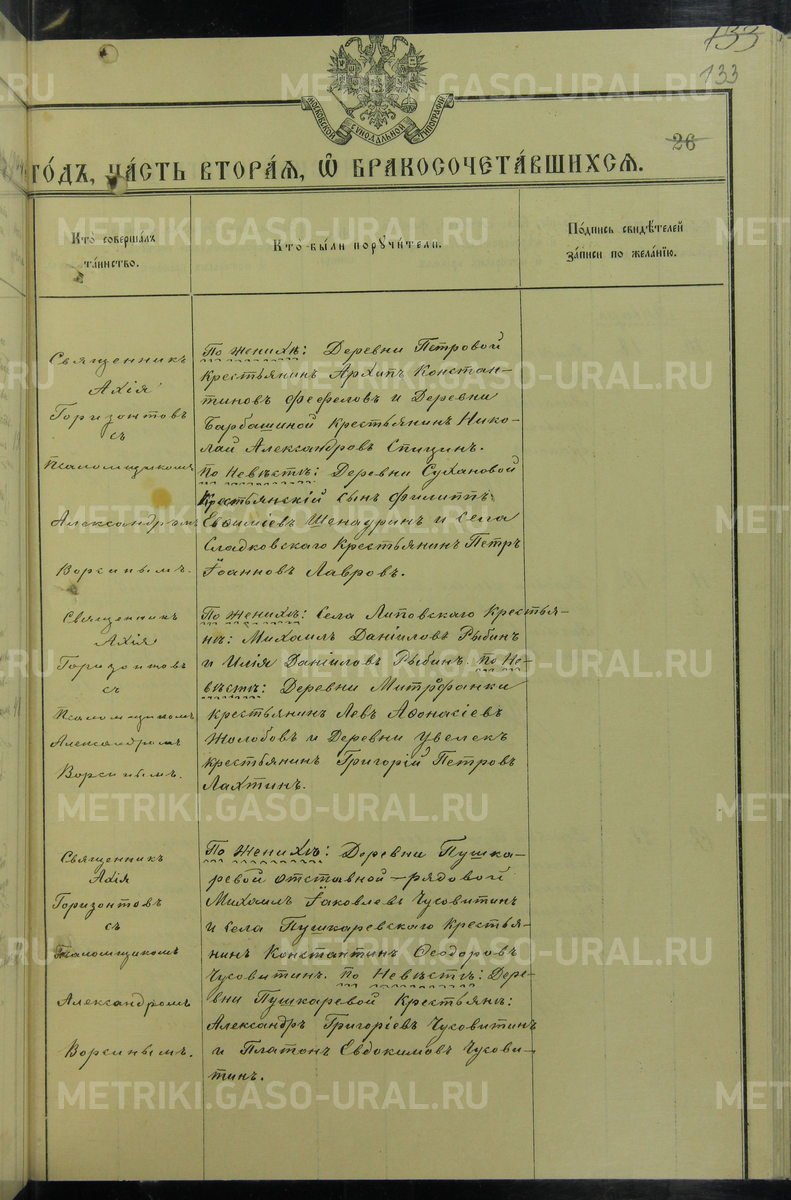 133
133
МОСКОВСКОЙ СѴНОДАЛЬНОЙ ТИПОГРАФІИ
26
го́дъ, ча́сть втора́ѧ, ѡ҆ бракосочета́вшихсѧ.
Кто̀ соверша́лъ
та́инство.
Кто̀ бы́ли порꙋчи́тели.
По́дпись свидѣ́телей
за́писи по жела́нїю.
Священникъ
Ахія
Горизонтовъ
съ
Псаломщикомъ
Александромъ
Ворсинымъ.
По Женихѣ: Деревни Петровой
крестьянинъ Архипъ Констан-
тиновъ Фефеловъ и Деревни
Барбашиной крестьянинъ Нико-
лай Александровъ Спицинъ.
По Невѣстѣ: Деревни Сухановой
Крестьянскій сынъ Филиппъ
Евѳиміевъ Шенауринъ и Села
Сладковскаго Крестьянинъ Петръ
Іоанновъ Лавровъ.
Священникъ
Ахія
Горизонтовъ
съ
Псаломщикомъ
Александромъ
Ворсинымъ.
По Женихѣ: Села Липовскаго Крестья-
нѣ: Михаилъ Даніиловъ Рыбинъ
и Илія Даніиловъ Рыбинъ. По Не-
вѣстѣ: Деревни Митрофанки
крестьянинъ Левъ Аѳонасіевъ
Жолобовъ и Деревни Увелекъ
крестьянинъ Григорій Петровъ
Лахтинъ.
Священникъ
Ахія
Горизонтовъ
съ
Псаломщикомъ
Александромъ
Ворсинымъ.
По Женихѣ: Деревни Пушка-
ревой отставной рядовой
Михаилъ Іаковлевъ Чусовитинъ
и Села Пушкаревскаго Крестья-
нинъ Константинъ Ѳеодоровъ
Чусовитинъ. По Невѣстѣ: Дере-
вни Пушкаревой Крестьянѣ:
Александръ Григоріевъ Чусовитинъ
и Платонъ Евдокимовъ Чусови-
тинъ.
METRIKI.GASO-URAL.RU